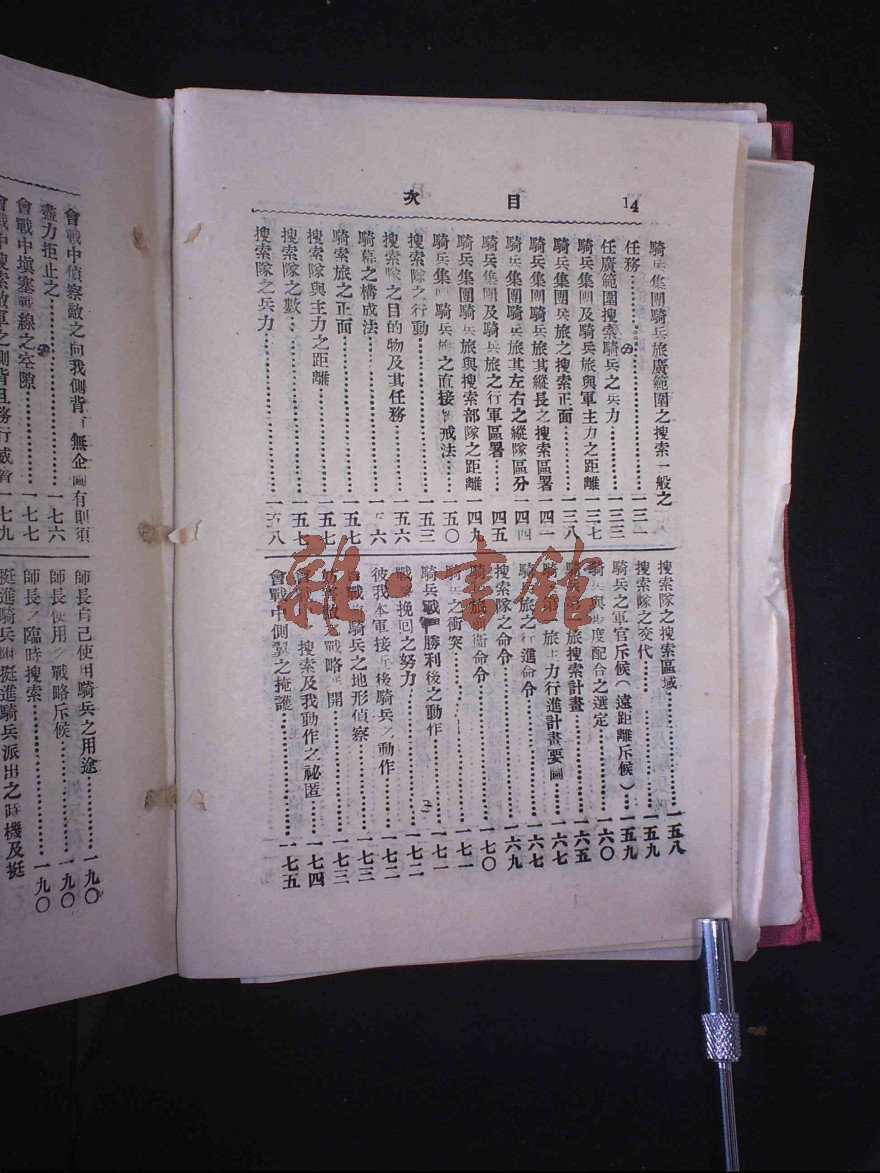 目次
14
騎兵集團騎兵旅廣範圍之搜索一般之
任務……一三一
任廣範圍搜索騎兵之兵力……一三三
騎兵集團及騎兵旅與軍主力之距離 一三七
騎兵集團騎兵旅之搜索正面……一三八
騎兵集團騎兵旅其縱長之搜索區署 一四一
騎兵集團騎兵旅其左右之縱隊區分 一四四
騎兵集團及騎兵旅之行軍區署……一四五
騎兵集團騎兵旅與搜索部隊之距離 一四九
騎兵集團騎兵旅之直接警戒法……一五〇
搜索隊之行動……一五三
搜索隊之目的物及其任務……一五六
騎幕之構成法……一五六
騎索旅之正面……一五七
搜索隊與主力之距離……一五七
搜索隊之數……一五七
搜索隊之兵力……一五八
搜索隊之搜索區域……一五八
搜索隊之交代……一五九
騎兵之軍官斥候(遠距離斥候)……一五九
騎兵與 度配合之選定……一六〇
騎兵第 旅搜索計畫……一六五
騎兵第 旅主力行進計畫要圖……一六七
騎兵旅之行進命令……一六七
搜索隊之命令……一六九
騎兵旅前衛命令……一七〇
騎兵之衝突……一七一
騎兵戰 勝利後之動作……一七一
戰 挽回之努力……一七二
彼我本軍接近後騎兵之動作……一七二
會戰 騎兵之地形偵察……一七三
妨害敵之戰略展開……一七三
會戰 搜索及我動作之祕匿……一七四
會戰中側翼之掩護……一七五
會戰中偵察敵之向我側背 無企圖有則須
盡力拒止之……一七六
會戰中塡塞戰線之空隙……一七七
會戰中搜索敵軍之側背且務行威脅 一七九
師長自己使用騎兵之用途……一九〇
師長使用之戰略斥候……一九〇
師長之臨時搜索……一九〇
挺進騎兵 挺進騎兵派出之時機及挺
雜·書館